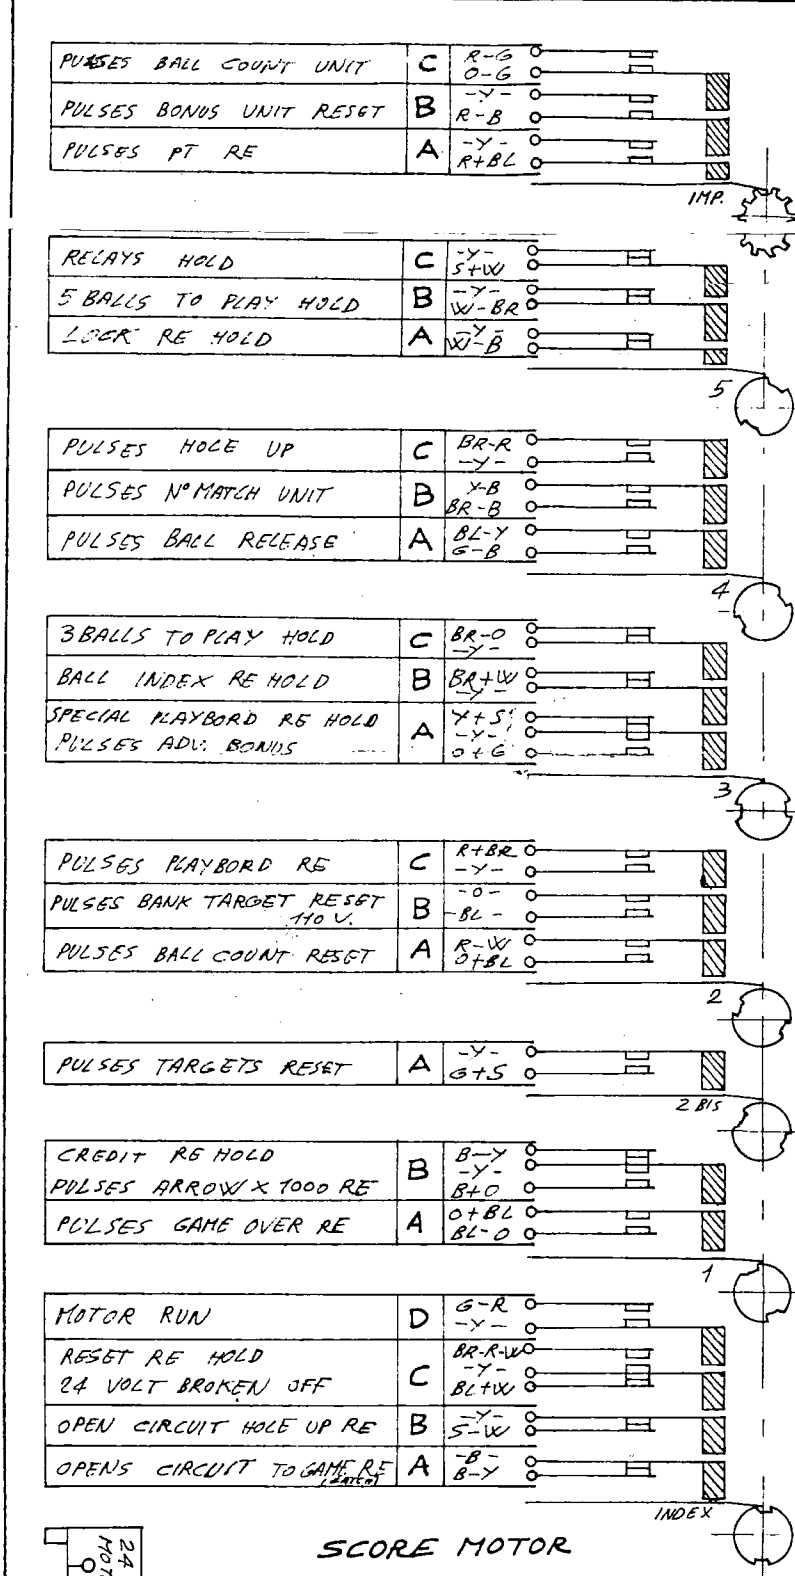 PULSES BALL COUNT UNIT C R-G O-G
PULSES BONUS UNIT RESET B -Y- R-B
PULSES PT RE A -Y- R+BL
IMP.
RELAYS HOLD C -Y- S+W
5 BALLS TO PLAY HOLD B -Y- W-BR
LOCK RE HOLD A -Y- W-B
5
PULSES HOLE UP C BR-R -Y-
PULSES Nº MATCH UNIT B Y-B BR-B
PULSES BALL RELEASE A BL-Y G-B
4
3 BALLS TO PLAY HOLD C BR-O -Y-
BALL INDEX RE HOLD B BR+W -Y-
SPECIAL PLAYBORD RE HOLD A Y+S -Y-
PULSES ADV. BONUS O+G
3
PULSES PLAYBORD RE C R+BR -Y-
PULSES BANK TARGET RESET B -O-
110 V. -BL-
PULSES BALL COUNT RESET A R-W O+BL
2
PULSES TARGETS RESET A -Y- G+S
2 BIS
CREDIT RE HOLD B B-Y -Y-
PULSES ARROW X 1000 RE B+O
PULSES GAME OVER RE A O+BL BL-O
1
MOTOR RUN D G-R -Y-
RESET RE HOLD C BR-R-W -Y-
24 VOLT BROKEN OFF BL+W
OPEN CIRCUIT HOLE UP RE B -Y- S-W
OPENS CIRCUIT TO GAME RE A -B- B-Y
(LATCH)
INDEX
SCORE MOTOR
24